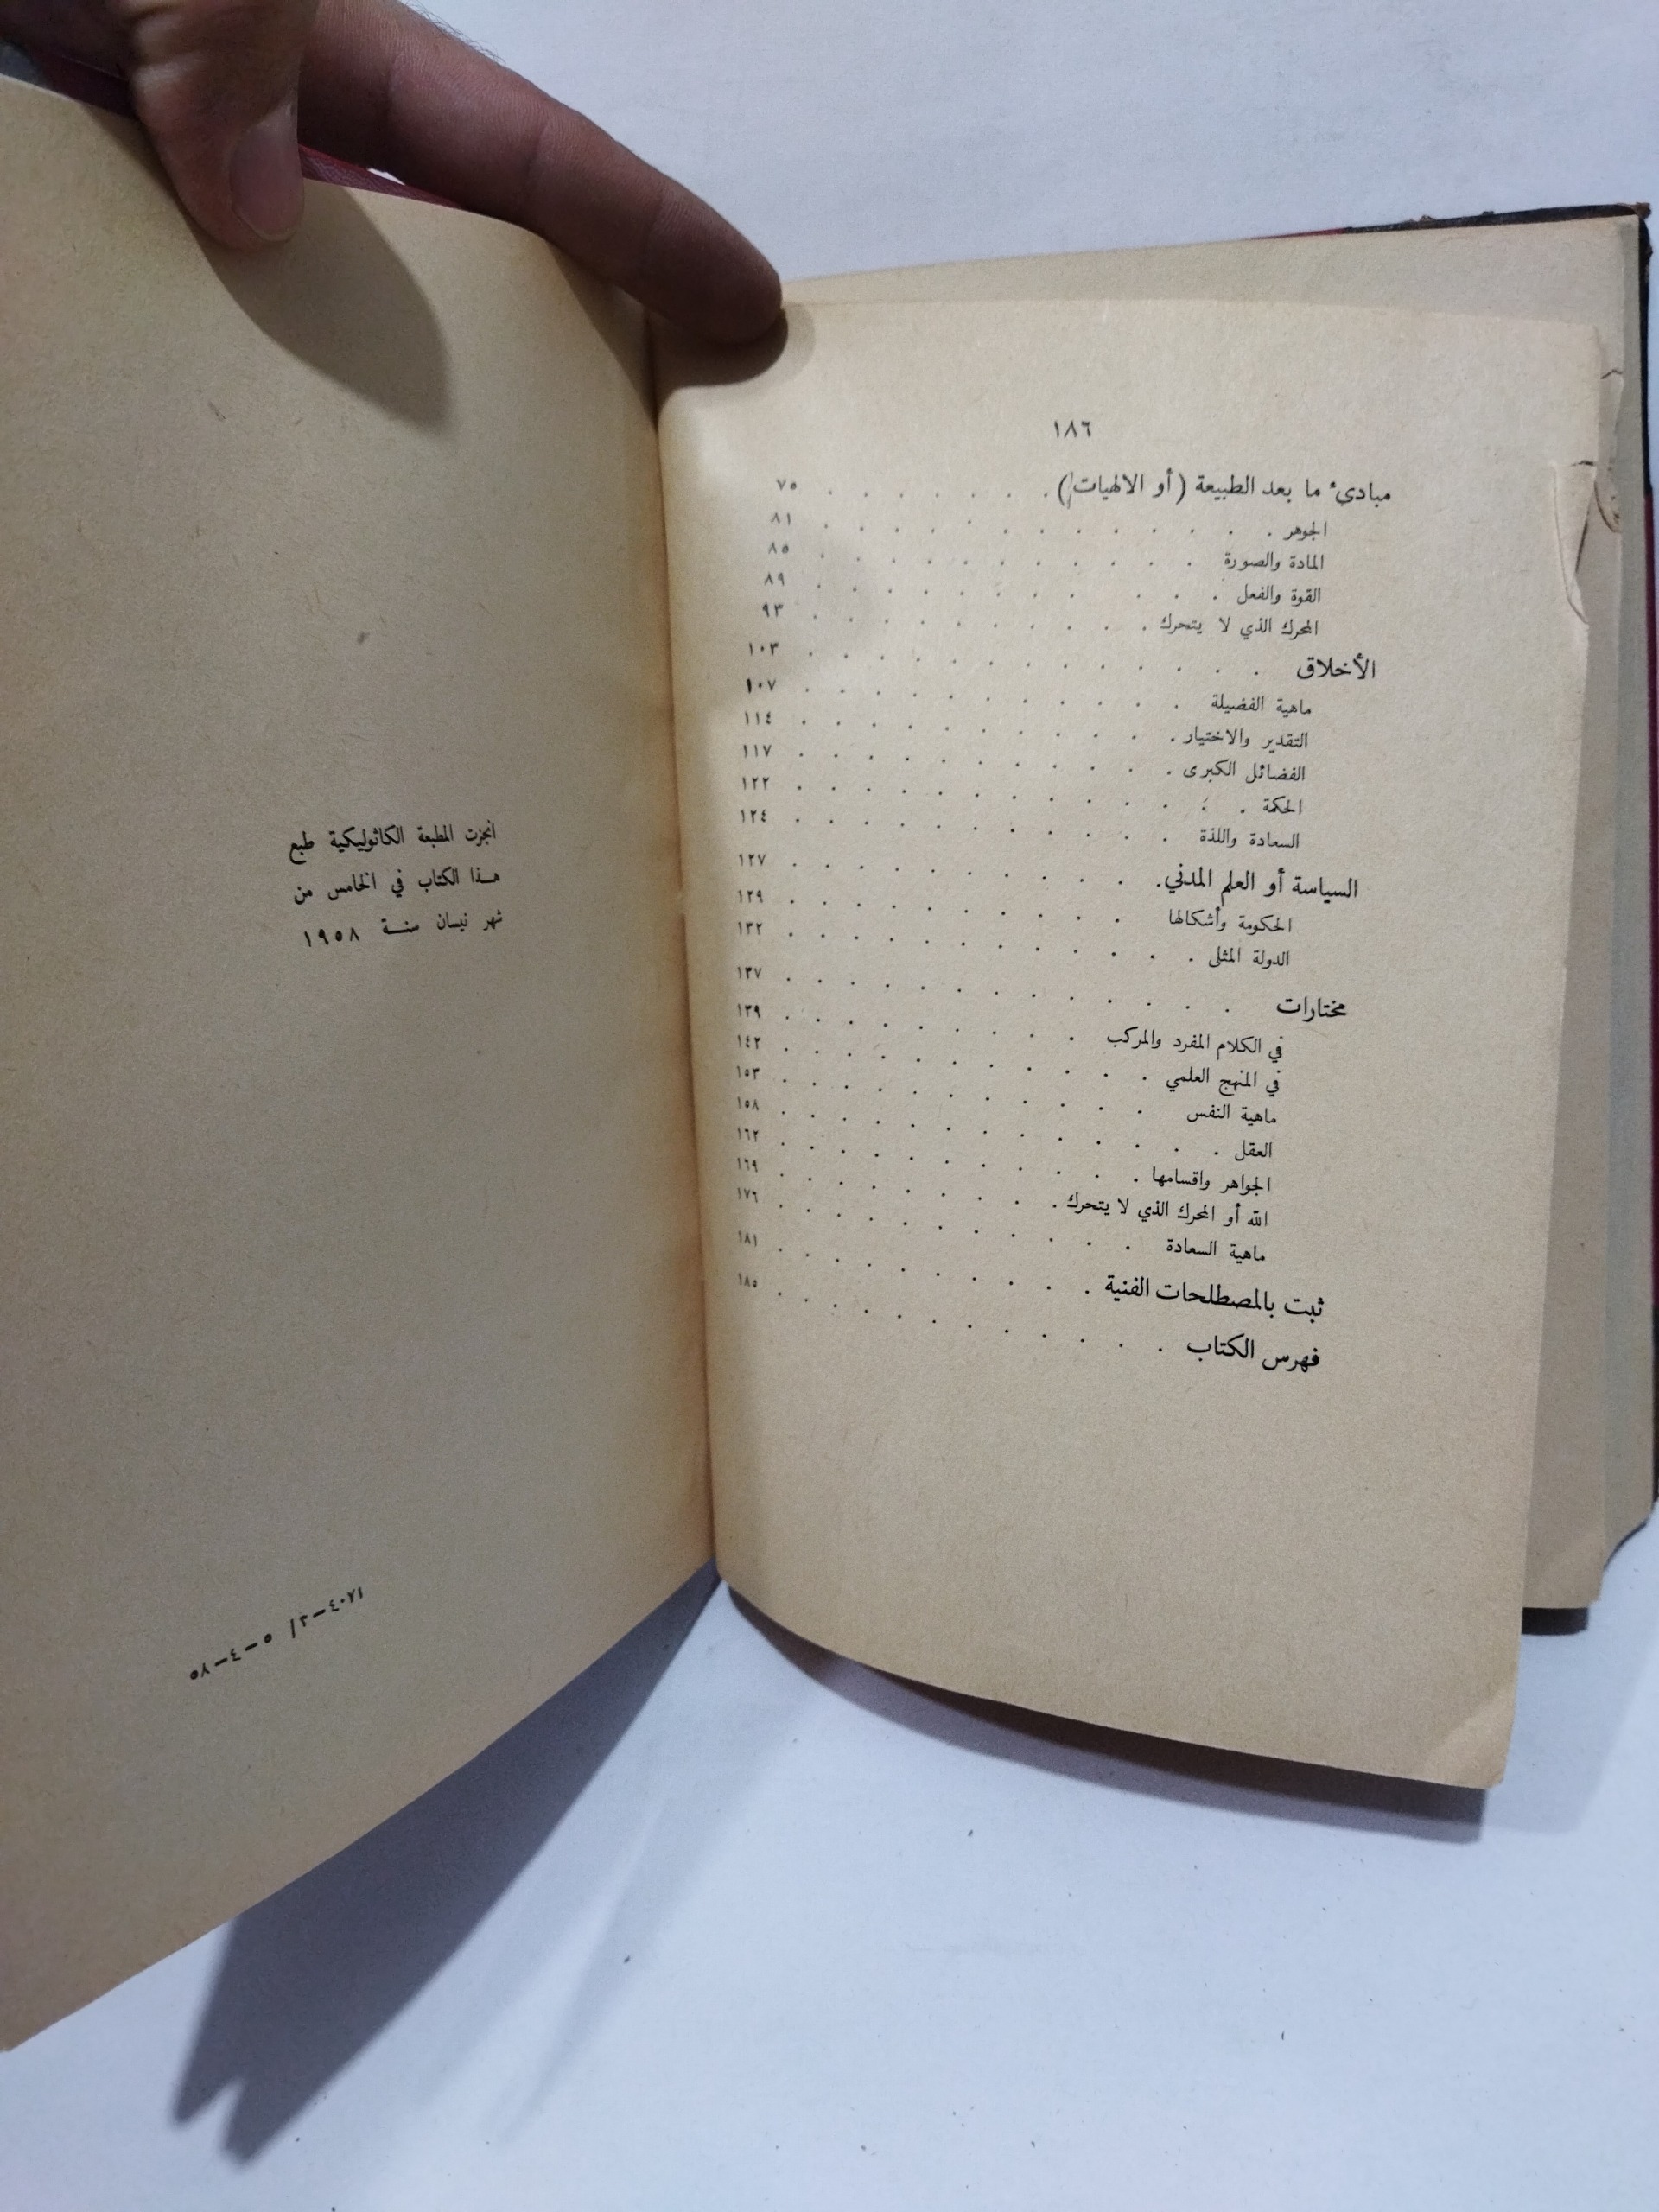 ١٨٦
مبادىء ما بعد الطبيعة (أو الالهيات) . . . . . . . ٧٥
الجوهر . . . . . . . . . . . . ٨١
المادة والصورة . . . . . . . . . . ٨٥
القوة والفعل . . . . . . . . . . ٨٩
المحرك الذي لا يتحرك . . . . . . . . . ٩٣
الأخلاق . . . . . . . . . . . . ١٠٣
ماهية الفضيلة . . . . . . . . . . ١٠٧
التقدير والاختيار . . . . . . . . . . ١١٤
الفضائل الكبرى . . . . . . . . . . ١١٧
الحكمة . . . . . . . . . . . . ١٢٢
السعادة واللذة . . . . . . . . . . ١٢٤
السياسة أو العلم المدني . . . . . . . . . ١٢٧
الحكومة وأشكالها . . . . . . . . . ١٢٩
الدولة المثلى . . . . . . . . . . . ١٣٢
مختارات . . . . . . . . . . . . ١٣٧
في الكلام المفرد والمركب . . . . . . . . ١٣٩
في المنهج العلمي . . . . . . . . . . ١٤٢
ماهية النفس . . . . . . . . . . ١٥٣
العقل . . . . . . . . . . . . ١٥٨
الجواهر واقسامها . . . . . . . . . . ١٦٢
الله أو المحرك الذي لا يتحرك . . . . . . . . ١٦٩
ماهية السعادة . . . . . . . . . . ١٧٦
ثبت بالمصطلحات الفنية . . . . . . . . . ١٨١
فهرس الكتاب . . . . . . . . . . ١٨٥
انجزت المطبعة الكاثوليكية طبع
هذا الكتاب في الخامس من
شهر نيسان سنة ١٩٥٨